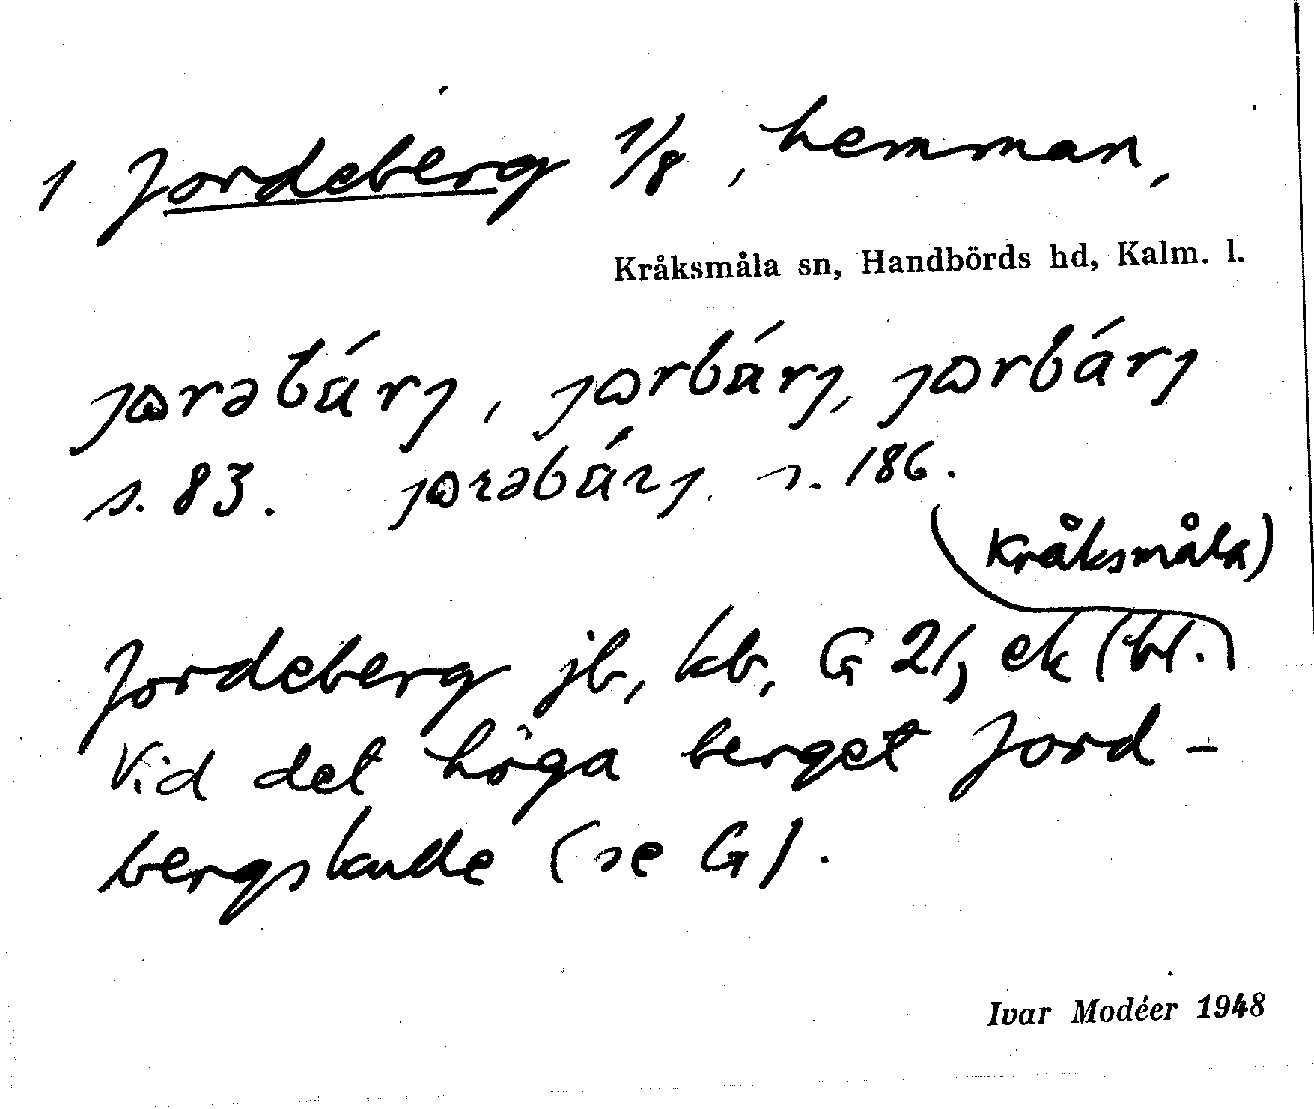 1 Jordeberg 1/8, hemman,
Kråksmåla sn, Handbörds hd, Kalm. l.
jɷrəbárj, jɷrbárj, jɷrbárj
s. 83. jɷrəbárj s. 186.
Kråksmåla)
Jordeberg jb, kb, G 21, ek (bl.
Vid det höga berget Jord-
bergskulle (se G).
Ivar Modéer 1948